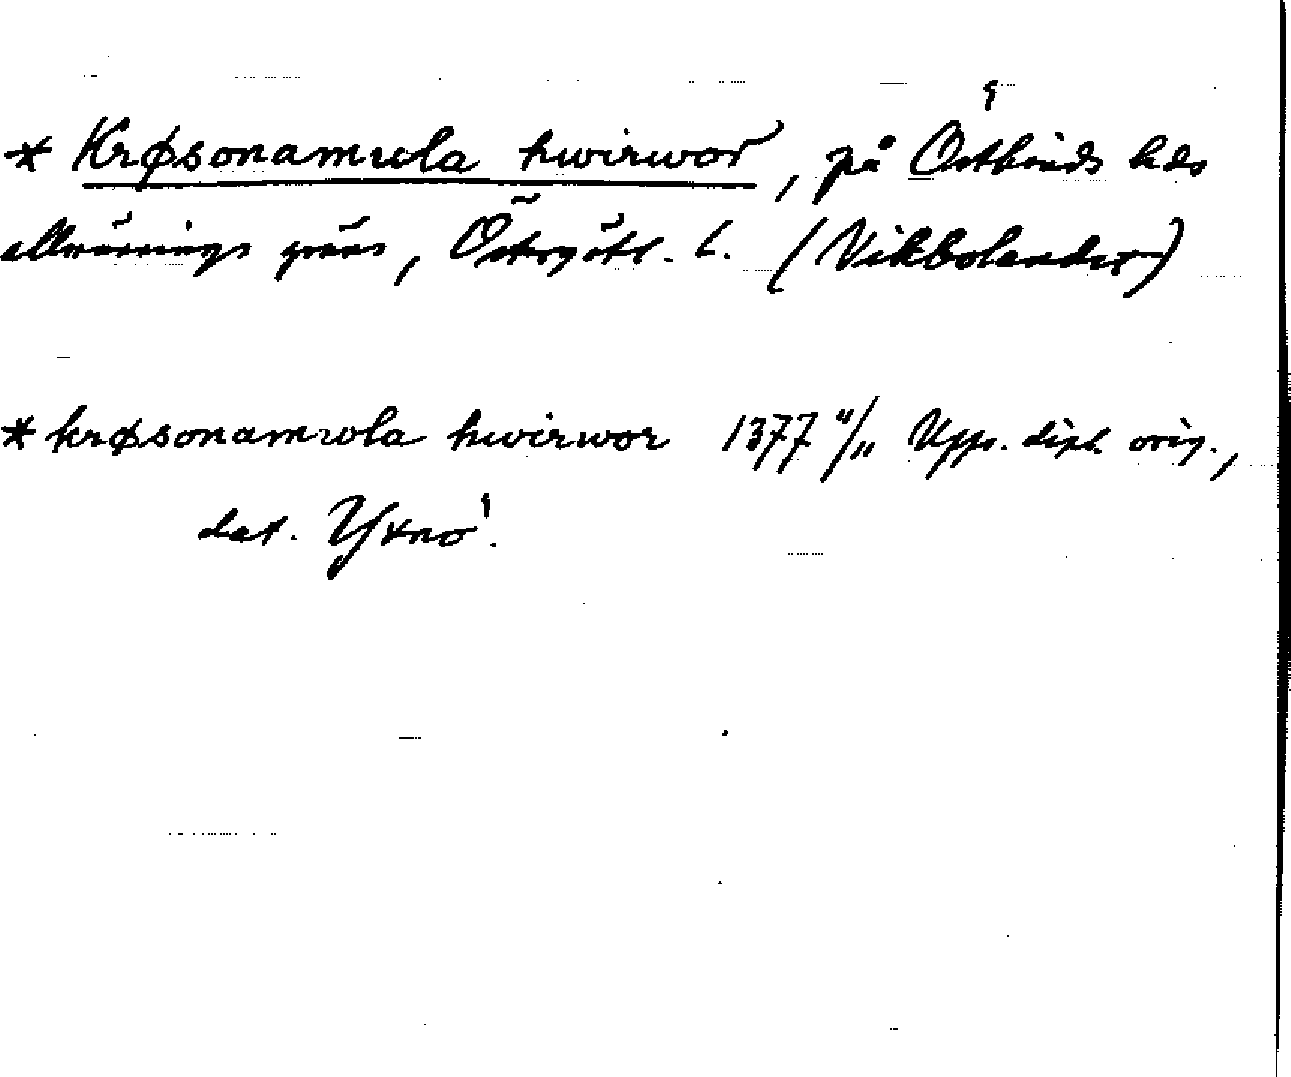 * Krøsonamrola hwirwor, på Östkinds hds
allmännings gräns, Östergötl. l. (Vikbolandet)
* krøsonamrola hwirwor 1377 4/11 Upps. dipl. orig.,
dat. Yxno'.